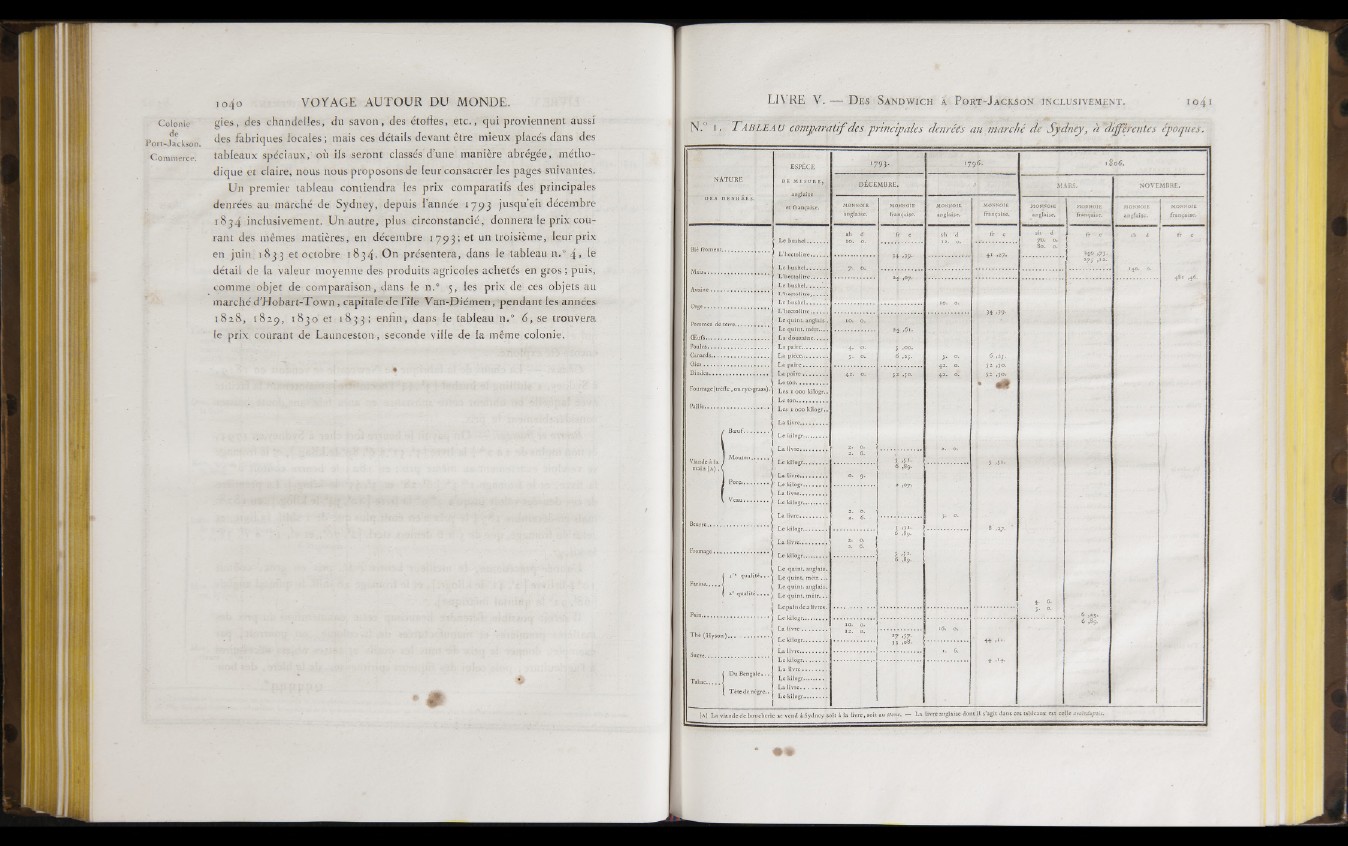 1040 VOYAGE AUTOUR DU MONDE.
Colonie
de
Port-Jackson.
Commerce.
gies, des chandelles, du savon, des étoffes, etc., qui proviennent aussi
des fabriques locales; mais ces détails devant être mieux placés dans des
tableaux spéciaux, où ils seront classés d'une manière abrégée, métho-
dique et claire, nous nous proposons de leur consacrer les pages suivantes.
Un premier tableau contiendra les prix comparatifs des principales
denrées au marché de Sydney, depuis l'année 1793 jusqu'en décembre
1834 inclusivement. Un autre, plus circonstancié, donnera le prix cou-
rant des mêmes matières, en décembre 1793; et un troisième, leur prix
en juin 1833 et octobre 1834. On présentera, dans le tableau n.° 4, le
détail de la valeur moyenne des produits agricoles achetés en gros; puis,
comme objet de comparaison, dans le n.° 5, les prix de ces objets au
marché d'Hobart-Town, capitale de l'île Van-Diémen, pendant les années
1828, 1829, 1830 et 1833; enfin, dans le tableau n.° 6, se trouvera
le prix courant de Launceston, seconde ville de la même colonie.
LIVRE V. — DES SANDWICH À PORT-JACKSON INCLUSIVEMENT. 1041
N.° 1. TABLEAU comparatif des principales denrées au marché de Sydney, à différentes époques.
NATURE
DES DENRÉES.
ESPÈCE
DE MESURE,
anglaise
et française.
1793. 1796. 1806.
DÉCEMBRE. MARS. NOVEMBRE.
MONNOIE anglaise. MONNOIE française. MONNOIE anglaise. MONNOIE française. MONNOIE anglaise. MONNOIE française. MONNOIE anglaise. MONNOIE française.
sh d fr c sh d fr c sh d fr c sh d fr c
Blé froment
Le bushel 10. 0. 12. 0. 70. 0. 80. 0.
L'hectolitre
Maïs
Le bushel 140. 0.
L'hectolitre
Avoine
Le bushel
L'hectolitre
Orge
Le bushel 10. 0.
L'hectolitre
Pommes de terre
Le quint. anglais 10. 0.
Le quint. métr.
Œufs La douzaine
Poules La paire 4. 0. 5 ,00.
Canards La pièce 5. 0. 6 ,25. 5. 0. 6 ,25.
Oies La paire 42. 0. 52 ,50.
Dindes La paire 42. 0. 52 ,50. 42. 0. 52 ,50.
Fourrage (trèfle, ou rye-grass)
Le ton
Les 1 000 kilogr.
Paille
Le ton
Les 1 000 kilogr.
Viande à la main (A).
Bœuf
La livre
Le kilogr.
Mouton
La livre 2. 0. 2. 6. 2. 0.
Le kilogr. 5 ,51. 6 ,89. 5 ,51.
Porc
La livre 0. 9.
Le kilogr. 2 ,07.
Veau
La livre
Le kilogr.
Beurre
La livre 2. 0. 2. 6. 3. 0.
Le kilogr. 5 ,51. 6 ,89. 8 ,27.
Fromage
La livre 2. 0. 2. 6.
Le kilogr. 5 ,51. 6 ,89.
Farine
1.re qualité
Le quint. anglais.
Le quint. métr.
2.e qualité
Le quint. anglais.
Le quint. métr.
Pain
Le pain de 2 livres. 4. 0. 5. 0.
Le kilogr.
Thé (Hyson)
La livre 10. 0. 12. 0. 16. 0.
Le kilogr.
Sucre
La livre 1. 6.
Le kilogr.
Tabac
Du Bengale
La livre
Le kilogr.
Tête de nègre
La livre
Le kilogr.
(A) La viande de boucherie se vend à Sydney soit à la livre, soit au stone. — La livre anglaise dont il s'agit dans ces tableaux est celle avoirdupois.